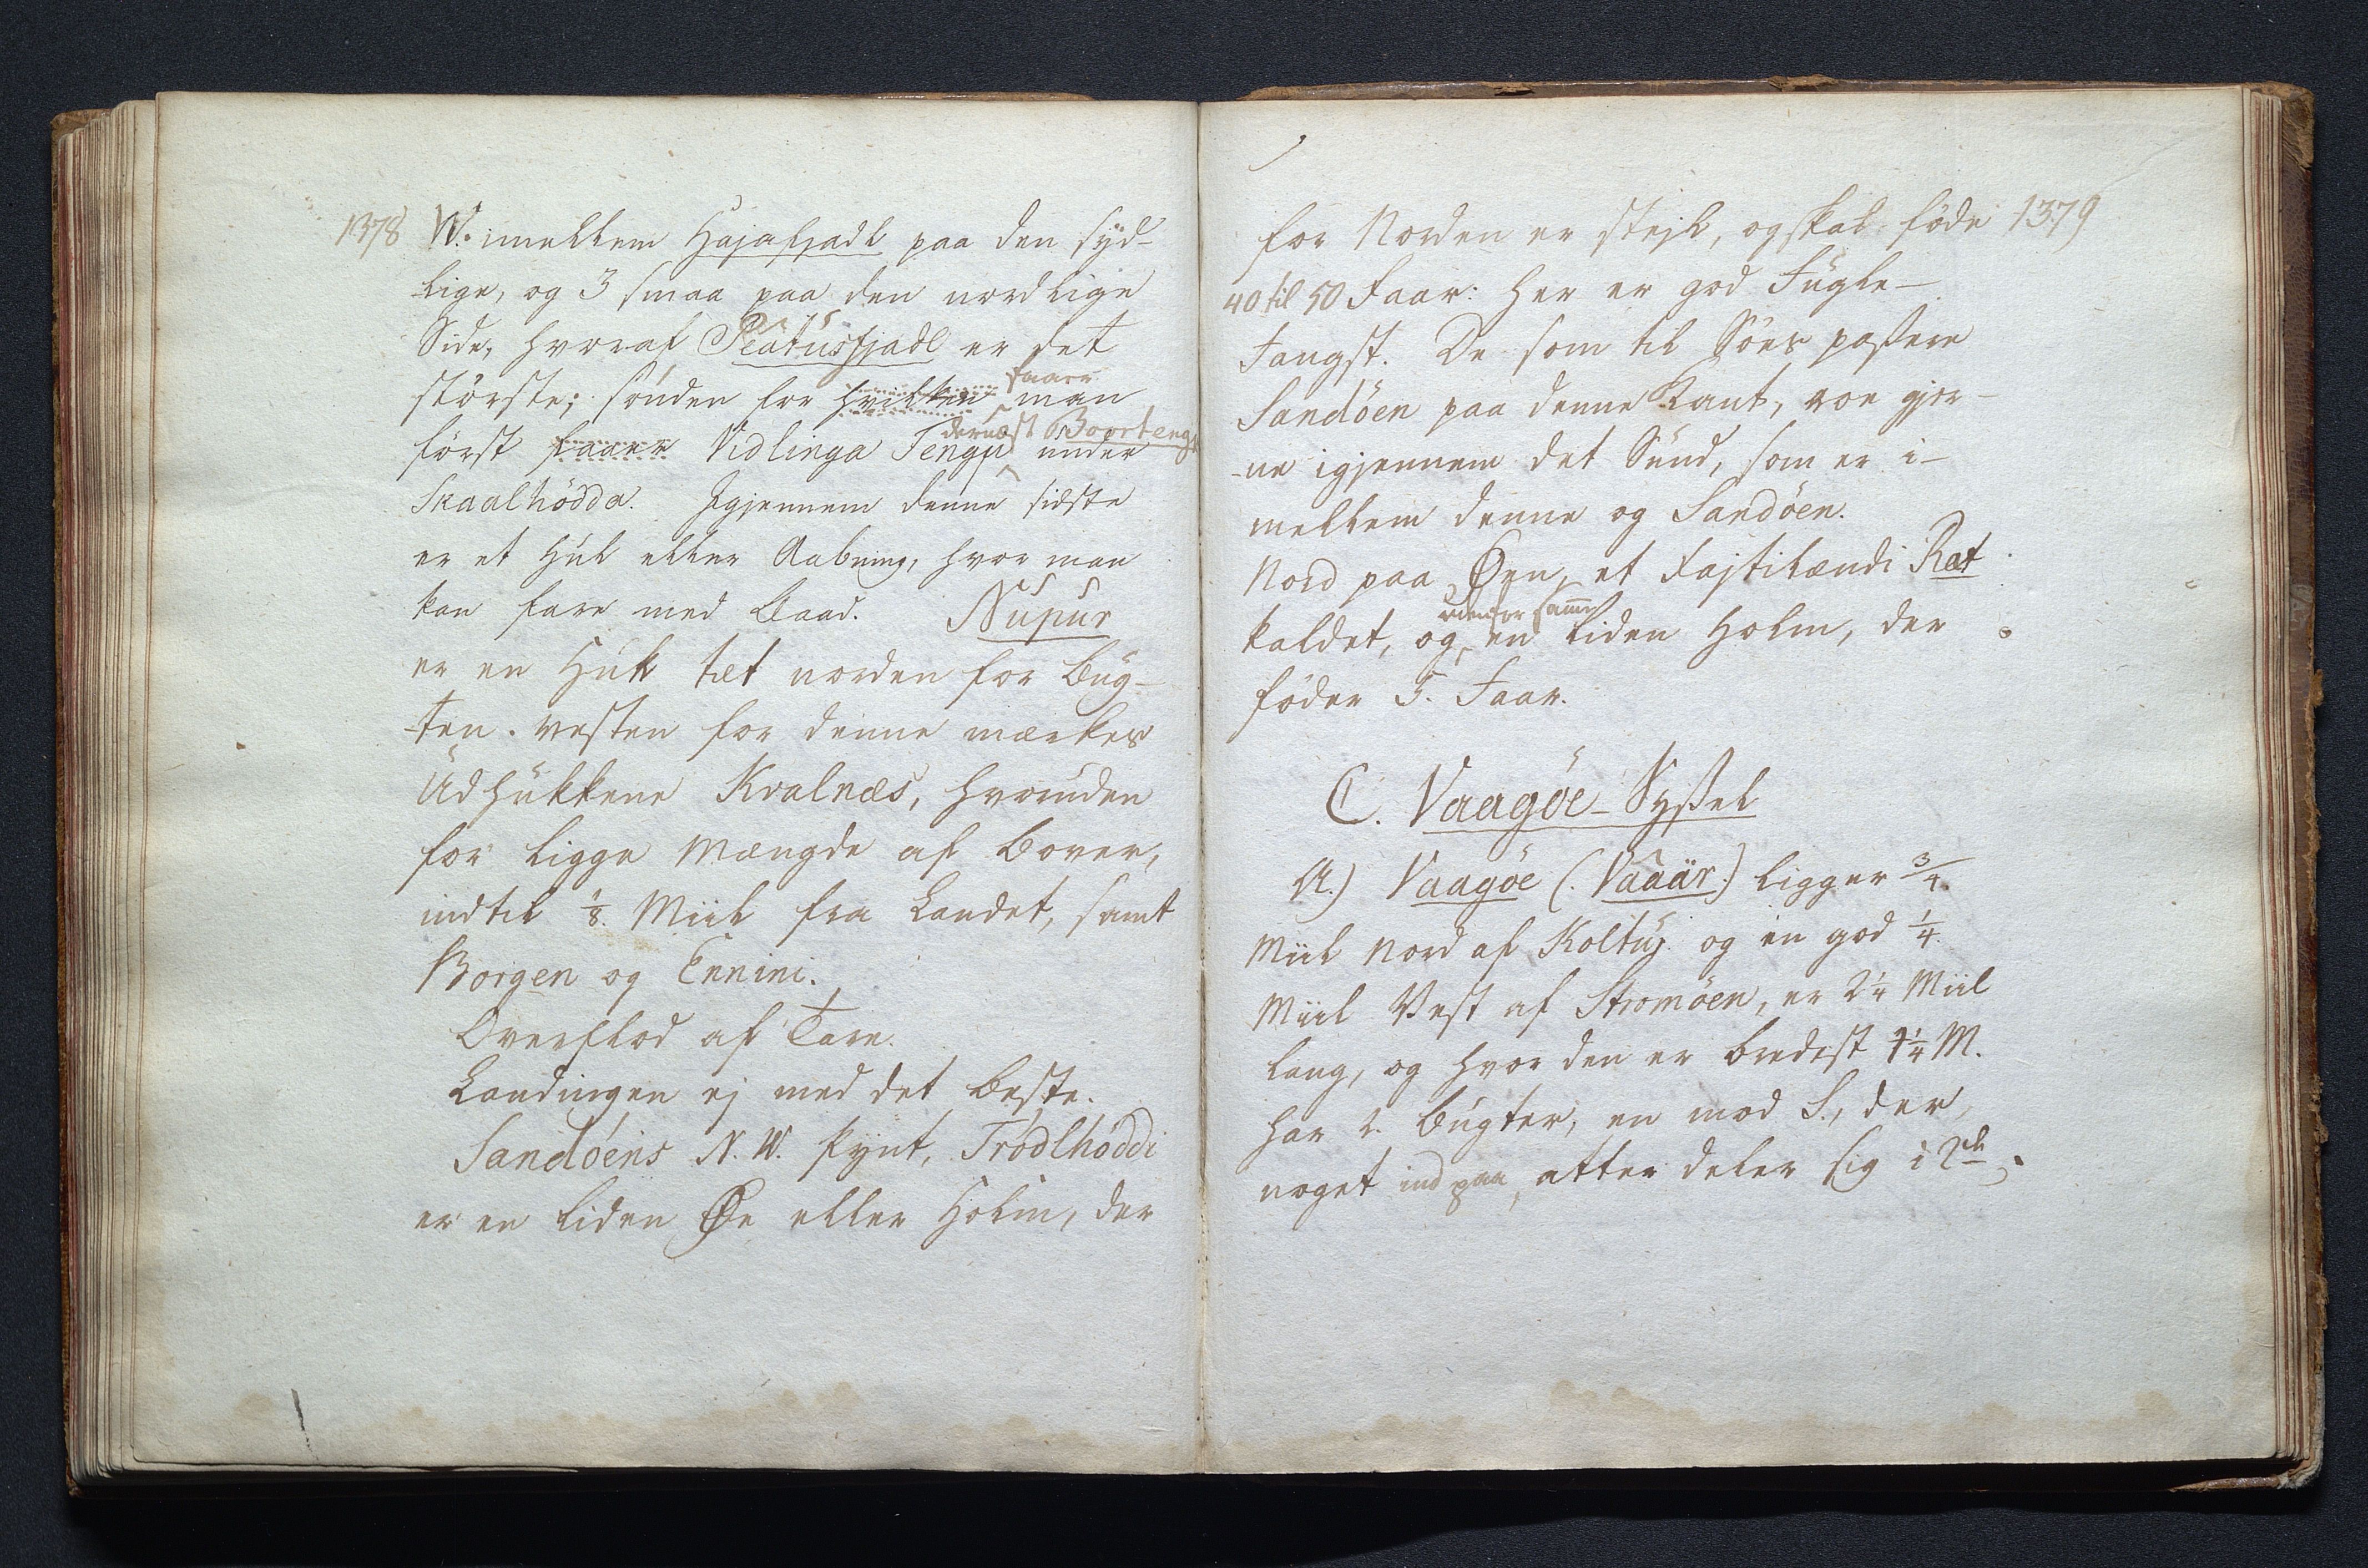 1378
W. imellem Højafjadl paa den syd-
lige, og 3 smaa paa den nordlige
Side, hvoraf Peatusfjadl er det
største; sønden for hvilken faaer man
først faaer Vidlinga Tenga dernæst Boortenga under
Skaalhødda. Igjennem denne sidste
er et Hul eller Aabning, hvor man
kan fare med Baad. Nupur
er en Huk tæt norden for Bug-
ten. Vesten for denne mærkes
Udhukkene Kvalnæs, hvoruden
for ligge Mængde af Bover,
indtil 1/8. Miil fra Landet, samt
Borgen og Ennini.
Overflod af Tare.
Landingen ej med det beste.
Sandøens N. W. Pynt, Trødlhøddi
er en liden Øe eller Holm, der
1379
for Norden er stejl, og skal føde
40 til 50 Faar: her er god Fugle-
Fangst. De som til Søes passere
Sandøen paa denne Kant, roe gjer-
ne igjennem det Sund, som er i-
mellem denne og Sandøen.
Nord paa Øen, et Fastilændi Ræt
kaldet, og udenfor samme en liden Holm, der
føder 5. Faar.
C. Vaagøe-Syssel
A.) Vaagøe (: Vaaär.) ligger 3/4.
Miil Nord af Koltur og en god 1/4.
Miil Vest af Strømøen, er 2 1/4 Miil
lang, og hvor den er bredest 1 1/4 M.
har 2. Bugter, en mod S., der,
noget ind paa, atter deler sig i 2de;